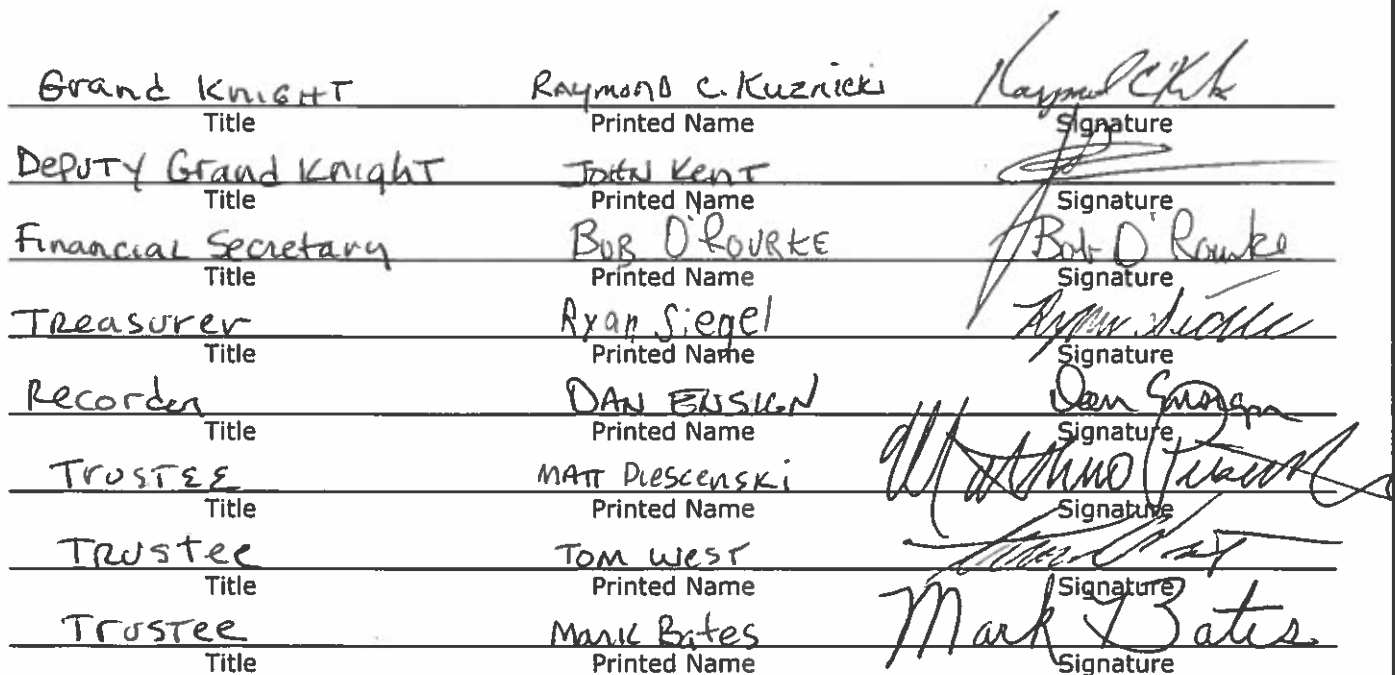 Grand KnIGHT RAymonD C. Kuznicki
Title Printed Name Signature
DePUTY Grand KnighT JOHN KenT
Title Printed Name Signature
Financial Secretary BOB O'ROURKE Bob O'Rourke
Title Printed Name Signature
TReasurer Ryan Siegel
Title Printed Name Signature
Recorder DAN ENSIGN Dan Ensign
Title Printed Name Signature
TrusTEE MATT
Title Printed Name Signature
TRUSTee TOM WEST
Title Printed Name Signature
TrusTee Mark Bates Mark Bates
Title Printed Name Signature